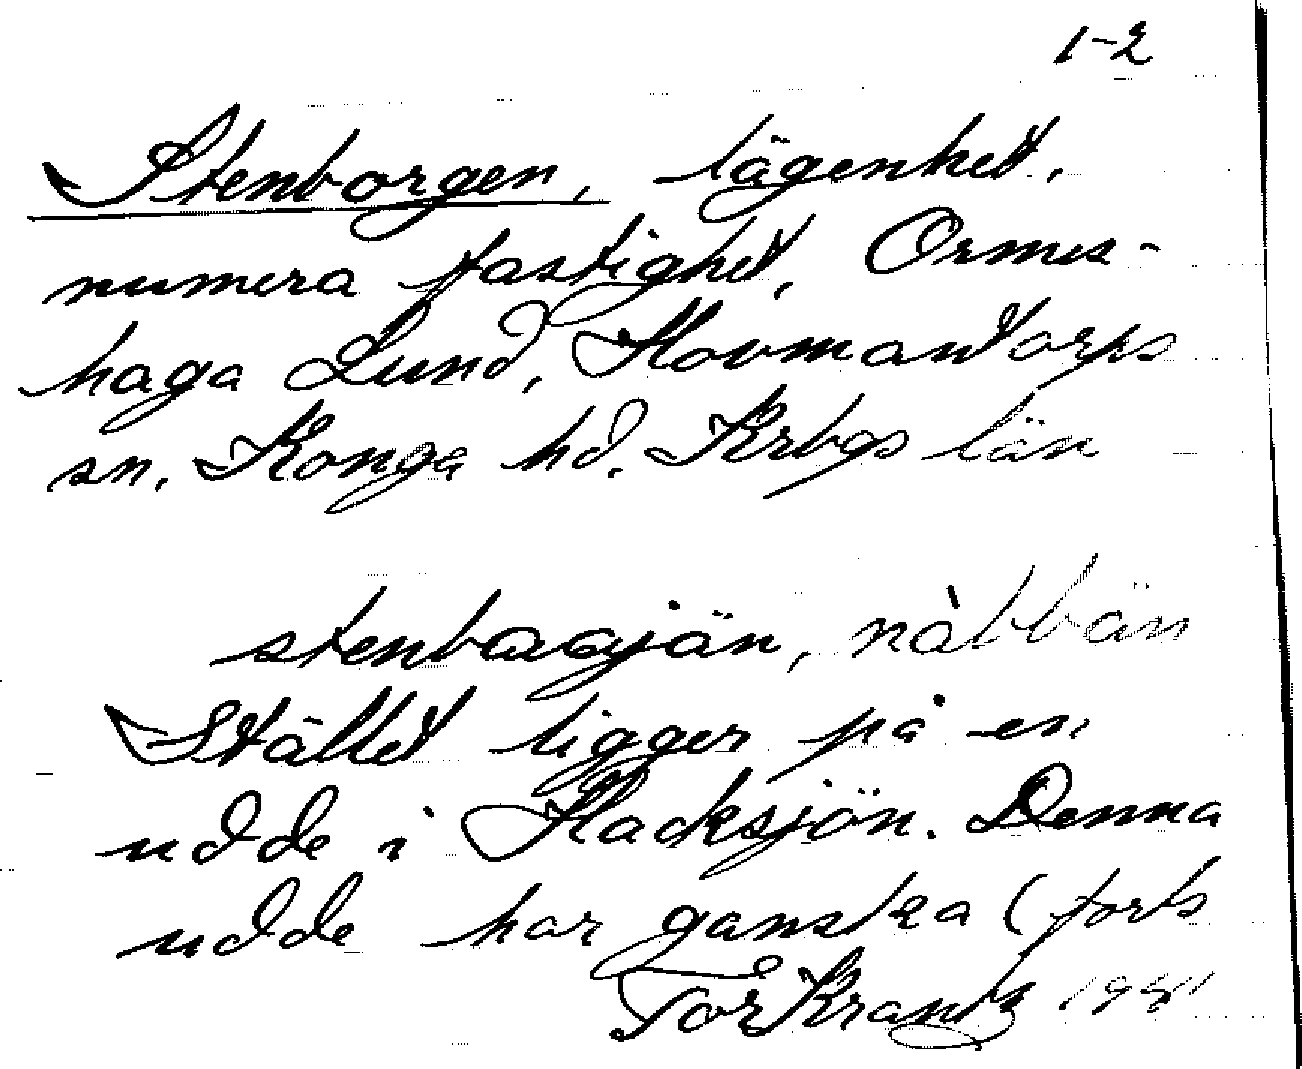 1-2
Stenborgen, lägenhet,
numera fastighet, Ormes-
haga Lund, Hovmantorps
sn. Konga hd. Krbgs län
nàbbän
Stället ligger på en
udde i Flacksjön. Denna
udde har ganska (forts
Tor Krantz 1981